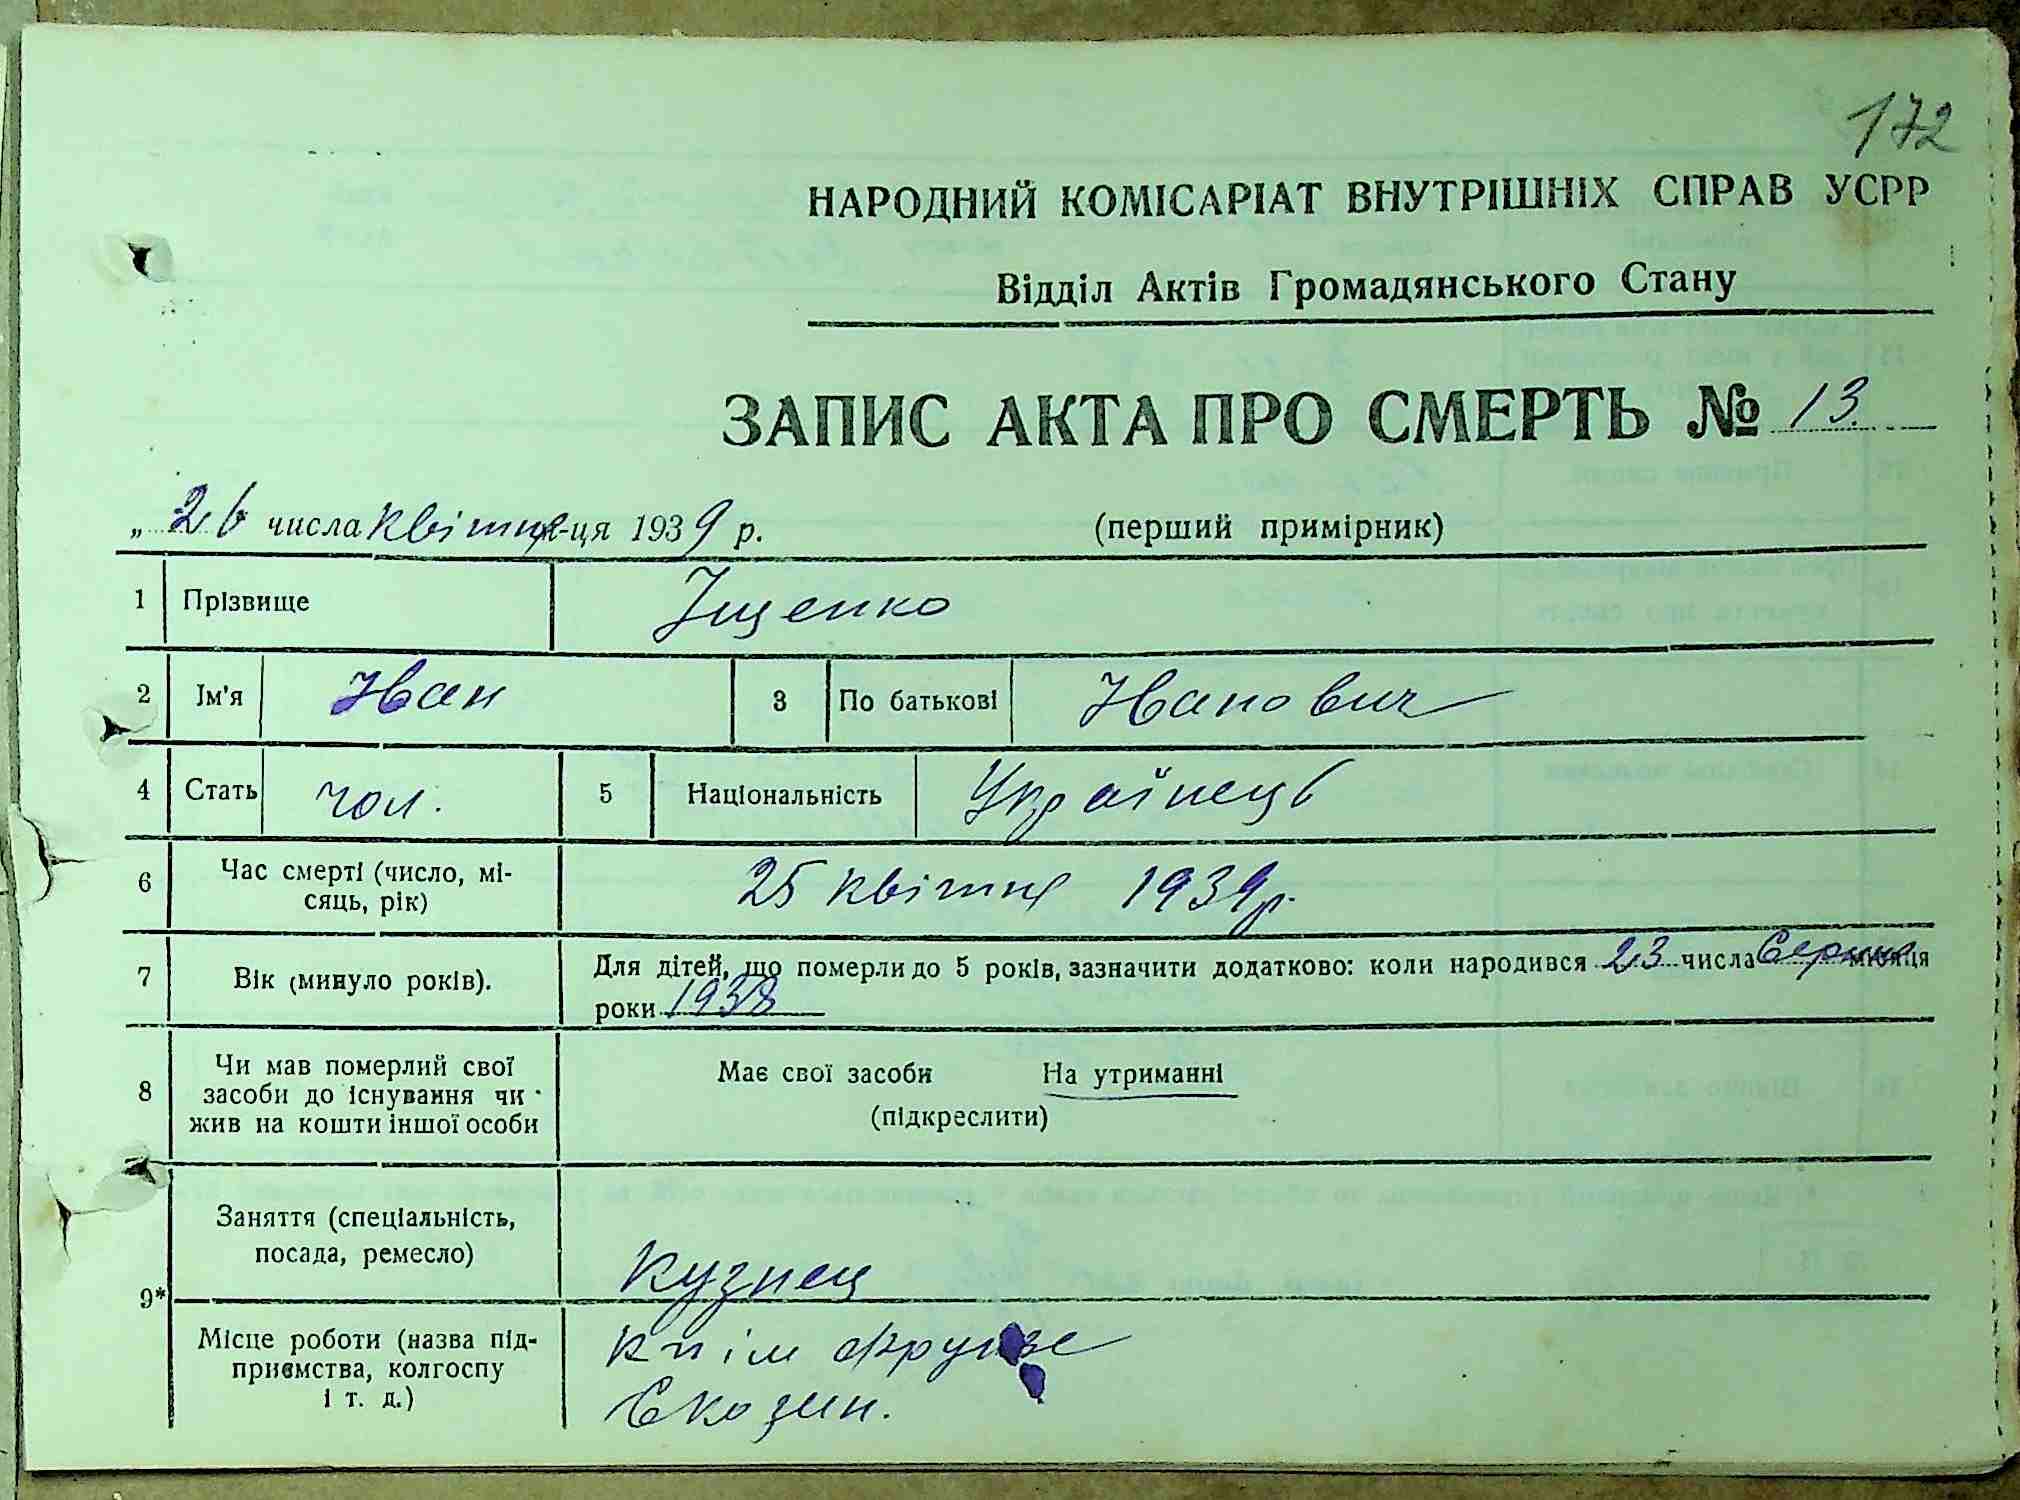 172
НАРОДНИЙ КОМІСАРІАТ ВНУТРІШНІХ СПРАВ УСРР
Відділ Актів Громадянського Стану
ЗАПИС АКТА ПРО СМЕРТЬ № 13.
„26 числа квітня-ця 1939 р. (перший примірник)
1 Прізвище Іщенко
2 Ім'я Іван 3 По батькові Іванович
4 Стать чол. 5 Національність Українець
6 Час смерті (число, мі-
сяць, рік) 25 квітня 1939р.
7 Вік (минуло років). Для дітей, що померли до 5 років, зазначити додатково: коли народився 23 числа Серпня місяця
роки 1938
8 Чи мав померлий свої
засоби до існування чи
жив на кошти іншої особи
Має свої засоби На утриманні
(підкреслити)
9*
Заняття (спеціальність,
посада, ремесло) Кузнец
Місце роботи (назва під-
приємства, колгоспу
і т. д.)
к п ім Фрунзе